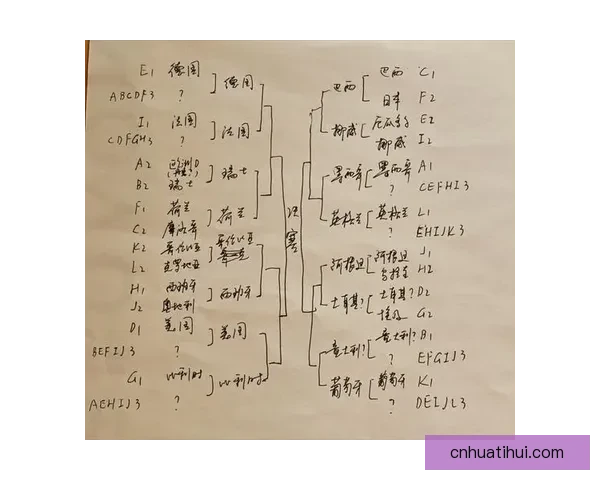 E1 德国
德国
ABCDF3 ?
I1 法国
法国
CDFGH3 ?
A2 欧洲D
瑞士
B2 瑞士
F1 荷兰
荷兰
C2 摩洛哥
K2 哥伦比亚
哥伦比亚
L2 克罗地亚
H1 西班牙
西班牙
J2 奥地利
D1 美国
美国
BEFIJ3 ?
G1 比利时
比利时
AEHIJ3 ?
决赛
巴西 C1
巴西
日本 F2
厄瓜多尔 E2
挪威
挪威 I2
墨西哥 A1
墨西哥
? CEFHI3
英格兰 L1
英格兰
? EHIJK3
阿根廷 J1
阿根廷
乌拉圭 H2
土耳其? D2
土耳其?
埃及 G2
意大利? B1
意大利?
? EFGIJ3
葡萄牙 K1
葡萄牙
? DEIJL3
cnhuatihui.com